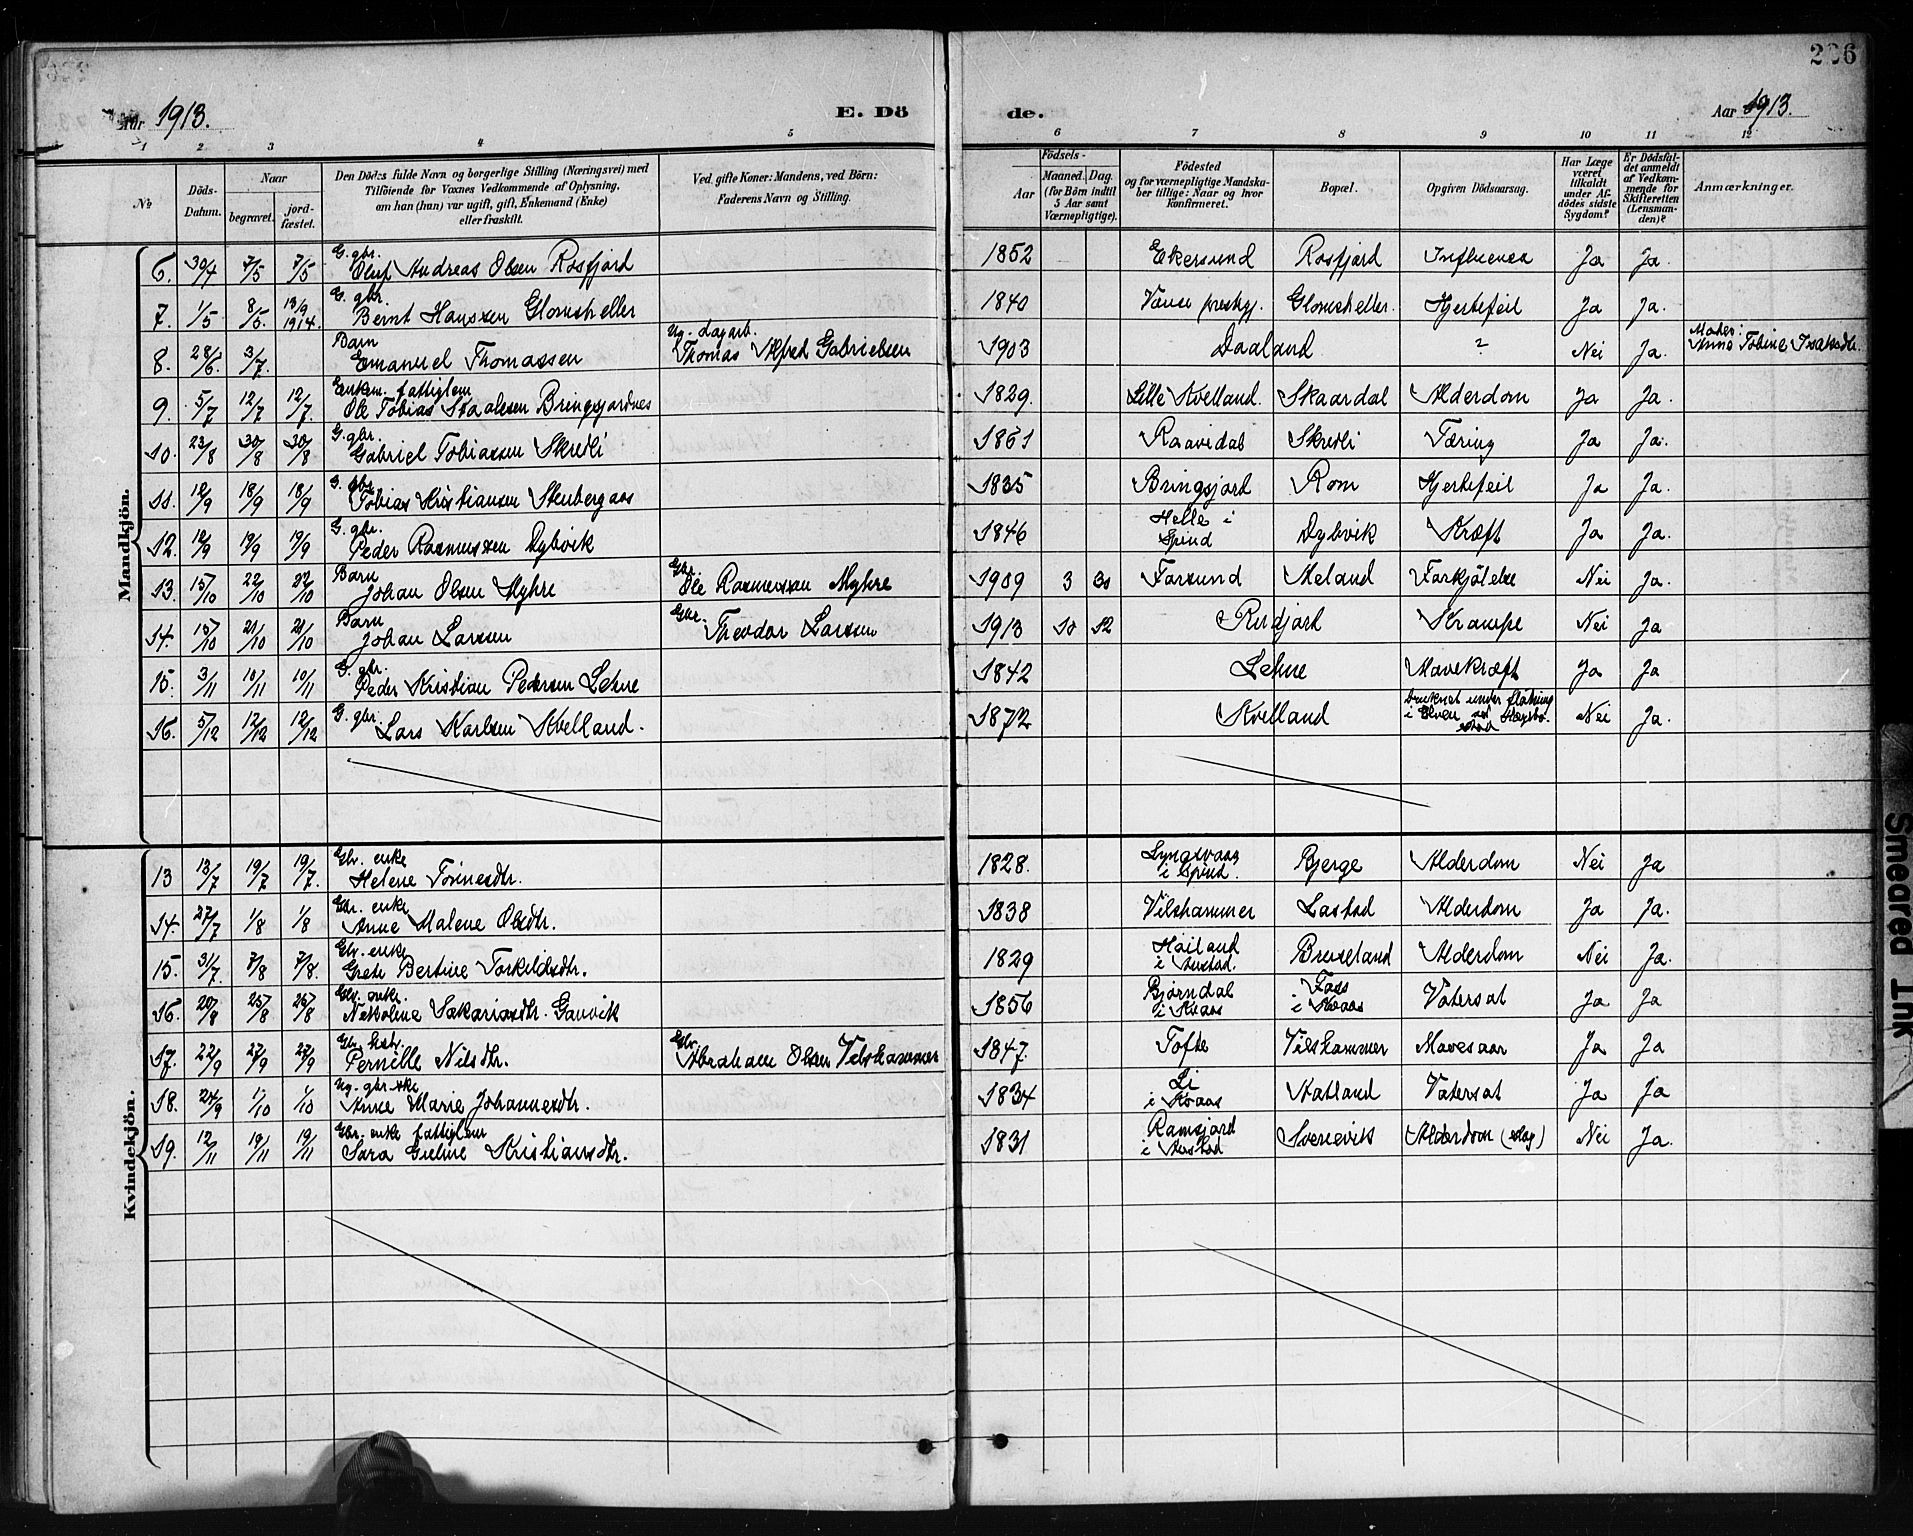 206
Aar 1913. E. Dö de. Aar 1913.
1 2 3 4 5 6 7 8 9 10 11 12
No
Döds-Datum.
Naar
begravet.
jordfæstet.
Den Dödes fulde Navn og borgerlige Stilling (Næringsvei) med
Tilföiende for Voxnes Vedkommende af Oplysning,
om han (hun) var ugift, gift, Enkemand (Enke)
eller fraskilt.
Ved gifte Koner: Mandens, ved Börn:
Faderens Navn og Stilling.
Födsels-
Aar
Maaned. Dag.
(for Börn indtil
5 Aar samt
Værnepligtige).
Födested
og for værnepligtige Mandskaber tillige: Naar og hvor
konfirmeret.
Bopæl.
Opgiven Dödsaarsag.
Har Læge
været
tilkaldt
under Afdödes sidste
Sygdom?
Er Dödsfaldet anmeldt
af Vedkommende for
Skifteretten
(Lensmanden)?
Anmærkninger.
Mandkjön.
6. 30/4 7/5 7/5 G. gbr. Oluf Andreas Olsen Rosfjord 1852 Ekersund Rosfjord Influenca Ja Ja.
7. 1/5 8/5. 13/9 1914. G. gbr. Bernt Hanssen Glomsheller 1840 Vanse prestgj. Glomsheller Hjertefeil Ja Ja.
8. 28/6. 3/7. Barn Emanuel Thomassen Ug. dagarb. Thomas Alfred Gabrielsen 1903 Daaland ? Nei Ja. Moder: Anna Tobine Isaksdtr.
9. 5/7 12/7 12/7. Enkem. fattiglem Ole Tobias Staalesen Bringsjordnes 1829. Lille Kvelland. Skaardal Alderdom Ja Ja.
10. 23/8 30/8 30/8 G. gbr. Gabriel Tobiassen Skredli 1861 Raavidal Skredli Tæring Ja Ja.
11. 12/9 18/9 18/9 G. gbr. Tobias Kristiansen Stenbergaas 1835 Bringsjord Rom Hjertefeil Ja Ja.
12. 12/9 19/9 19/9 G. gbr. Peder Rasmussen Dybvik 1846 Helle i Spind Dybvik Kræft Ja Ja.
13. 15/10 22/10 22/10 Barn Johan Olsen Myhre Gbr. Ole Rasmussen Myhre 1909 3 30 Farsund Meland Forkjölelse Nei Ja.
14. 15/10 21/10 21/10 Barn Johan Larsen Gbr. Theodor Larsen 1913 10 12 Rudjord Krampe Nei Ja
15. 3/11 10/11 10/11 G. gbr. Peder Kristian Pedersen Lehne 1842 Lehne Mavekræft Ja Ja
16. 5/12 12/12 12/12 G. gbr. Lars Karlsen Kvelland. 1872 Kvelland Druknet under flötning i Elven ved Nei Ja.
Kvindekjön.
13 13/7 19/7 19/7. Gbr. enke Helene Tönnesdtr. 1828. Lyngsvaag i Spind. Bjerge Alderdom Nei Ja
14. 27/7 1/8 1/8 Gbr. enke Anne Malene Olsdtr. 1838 Vilshammer Lastad Alderdom Ja Ja.
15. 31/7 7/8 7/8. Gbr. enke Grete Bertine Torkildsdtr. 1829 Höiland i Austad. Bruseland Alderdom Nei Ja.
16. 20/8 25/8 25/8 Gbr. enke. Nikoline Sakariasdtr. Gauvik 1856 Bjørndal i Kvaas Foss i Kvaas Vatersot Ja Ja
17. 22/9 27/9 27/9 Gbr. kstr. Pernille Nilsdtr. Gbr. Abraham Olsen Vilshammer 1847. Tofte Vilshammer Mavesaar Ja Ja
18. 24/9 1/10 1/10 Ug. gbr. Anne Marie Johannesdtr. 1834 Li i Kvaas Aatland Vatersot Ja Ja
19. 12/11 19/11 19/11 Gbr. enke fattiglem Sara Gieline Kristiansdtr. 1831 Ramsjord i Austad Svenevik Alderdom (slag) Nei Ja.
Smeared Ink